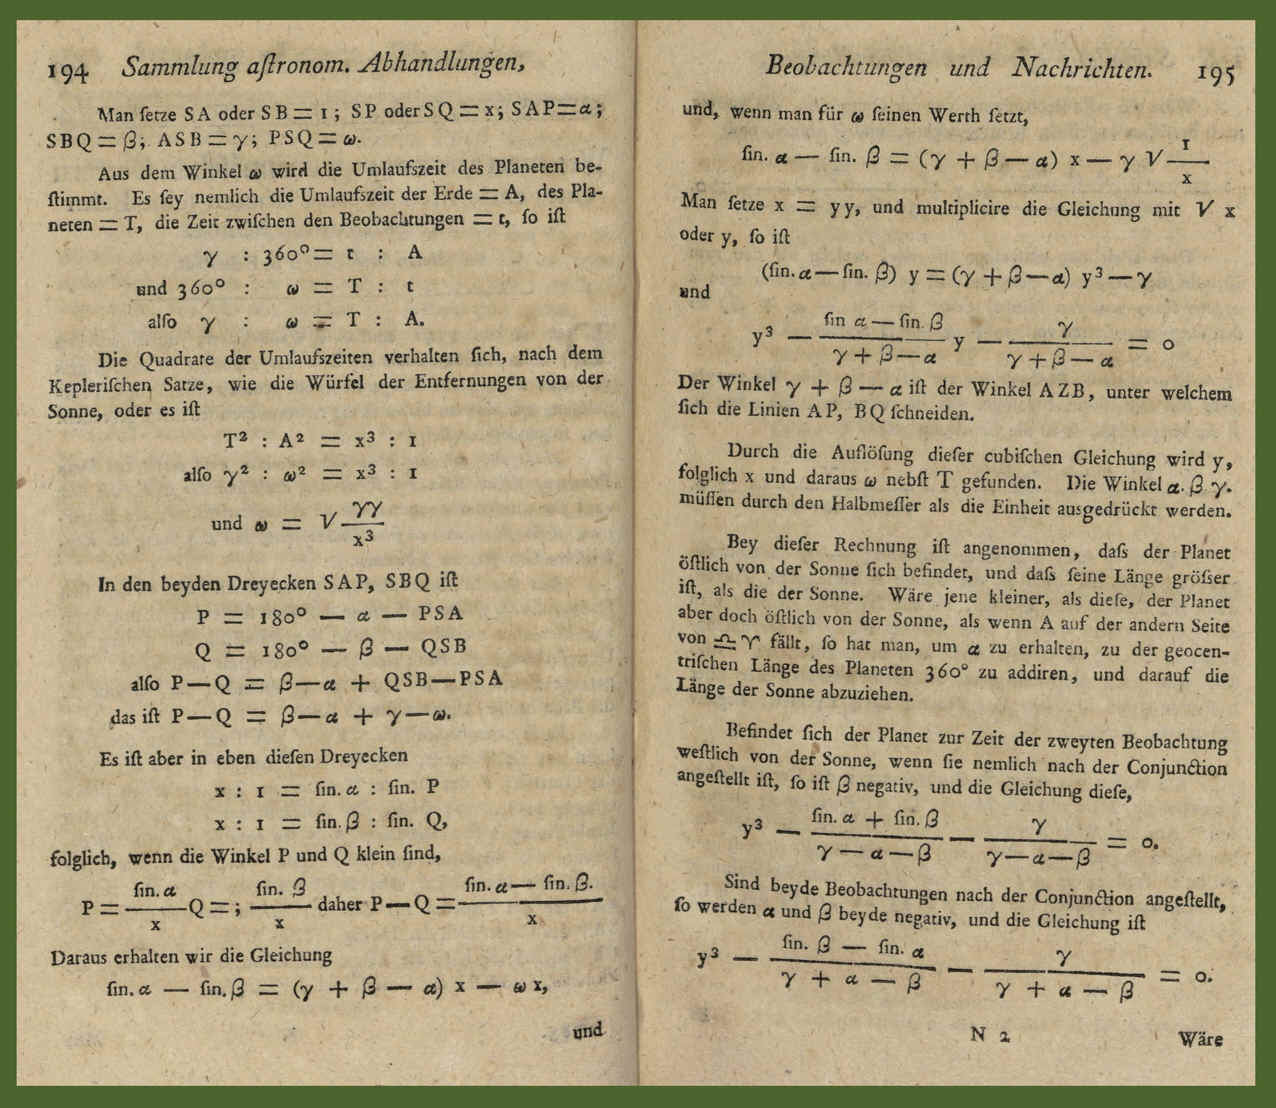 194 Sammlung aſtronom. Abhandlungen,
Man ſetze S A oder S B = 1 ; SP oder S Q = x; S A P = α;
S B Q = β; A S B = γ; P S Q = ω.
Aus dem Winkel ω wird die Umlaufszeit des Planeten be-
ſtimmt. Es ſey nemlich die Umlaufszeit der Erde = A, des Pla-
neten = T, die Zeit zwiſchen den Beobachtungen = t, ſo iſt
γ : 360° = t : A
und 360° : ω = T : t
alſo γ : ω = T : A.
Die Quadrate der Umlaufszeiten verhalten ſich, nach dem
Kepleriſchen Satze, wie die Würfel der Entfernungen von der
Sonne, oder es iſt
T² : A² = x³ : 1
alſo γ² : ω² = x³ : 1
und ω = √ γγ / x³
In den beyden Dreyecken S A P, S B Q iſt
P = 180° — α — PSA
Q = 180° — β — QSB
alſo P — Q = β — α + QSB — PSA
das iſt P — Q = β — α + γ — ω.
Es iſt aber in eben dieſen Dreyecken
x : 1 = ſin. α : ſin. P
x : 1 = ſin. β : ſin. Q,
folglich, wenn die Winkel P und Q klein ſind,
P = ſin. α / x Q = ; ſin. β / x daher P — Q = ſin. α — ſin. β. / x
Daraus erhalten wir die Gleichung
ſin. α — ſin. β = (γ + β — α) x — ω x,
und
Beobachtungen und Nachrichten. 195
und, wenn man für ω ſeinen Werth ſetzt,
ſin. α — ſin. β = (γ + β — α) x — γ √ 1 / x
Man ſetze x = y y, und multiplicire die Gleichung mit √ x
oder y, ſo iſt
(ſin. α — ſin. β) y = (γ + β — α) y³ — γ
und
y³ — ſin α — ſin. β / γ + β — α y — γ / γ + β — α = 0
Der Winkel γ + β — α iſt der Winkel A Z B, unter welchem
ſich die Linien A P, B Q ſchneiden.
Durch die Auflöſung dieſer cubiſchen Gleichung wird y,
folglich x und daraus ω nebſt T gefunden. Die Winkel α. β γ.
müſſen durch den Halbmeſſer als die Einheit ausgedrückt werden.
Bey dieſer Rechnung iſt angenommen, daſs der Planet
öſtlich von der Sonne ſich befindet, und daſs ſeine Länge gröſser
iſt, als die der Sonne. Wäre jene kleiner, als dieſe, der Planet
aber doch öſtlich von der Sonne, als wenn A auf der andern Seite
von ♎ ♈ fällt, ſo hat man, um α zu erhalten, zu der geocen-
triſchen Länge des Planeten 360° zu addiren, und darauf die
Länge der Sonne abzuziehen.
Befindet ſich der Planet zur Zeit der zweyten Beobachtung
weſtlich von der Sonne, wenn ſie nemlich nach der Conjunction
angeſtellt iſt, ſo iſt β negativ, und die Gleichung dieſe,
y³ — ſin. α + ſin. β / γ — α — β — γ / γ — α — β = 0.
Sind beyde Beobachtungen nach der Conjunction angeſtellt,
ſo werden α und β beyde negativ, und die Gleichung iſt
y³ — ſin. β — ſin. α / γ + α — β — γ / γ + α — β = 0.
N 2 Wäre